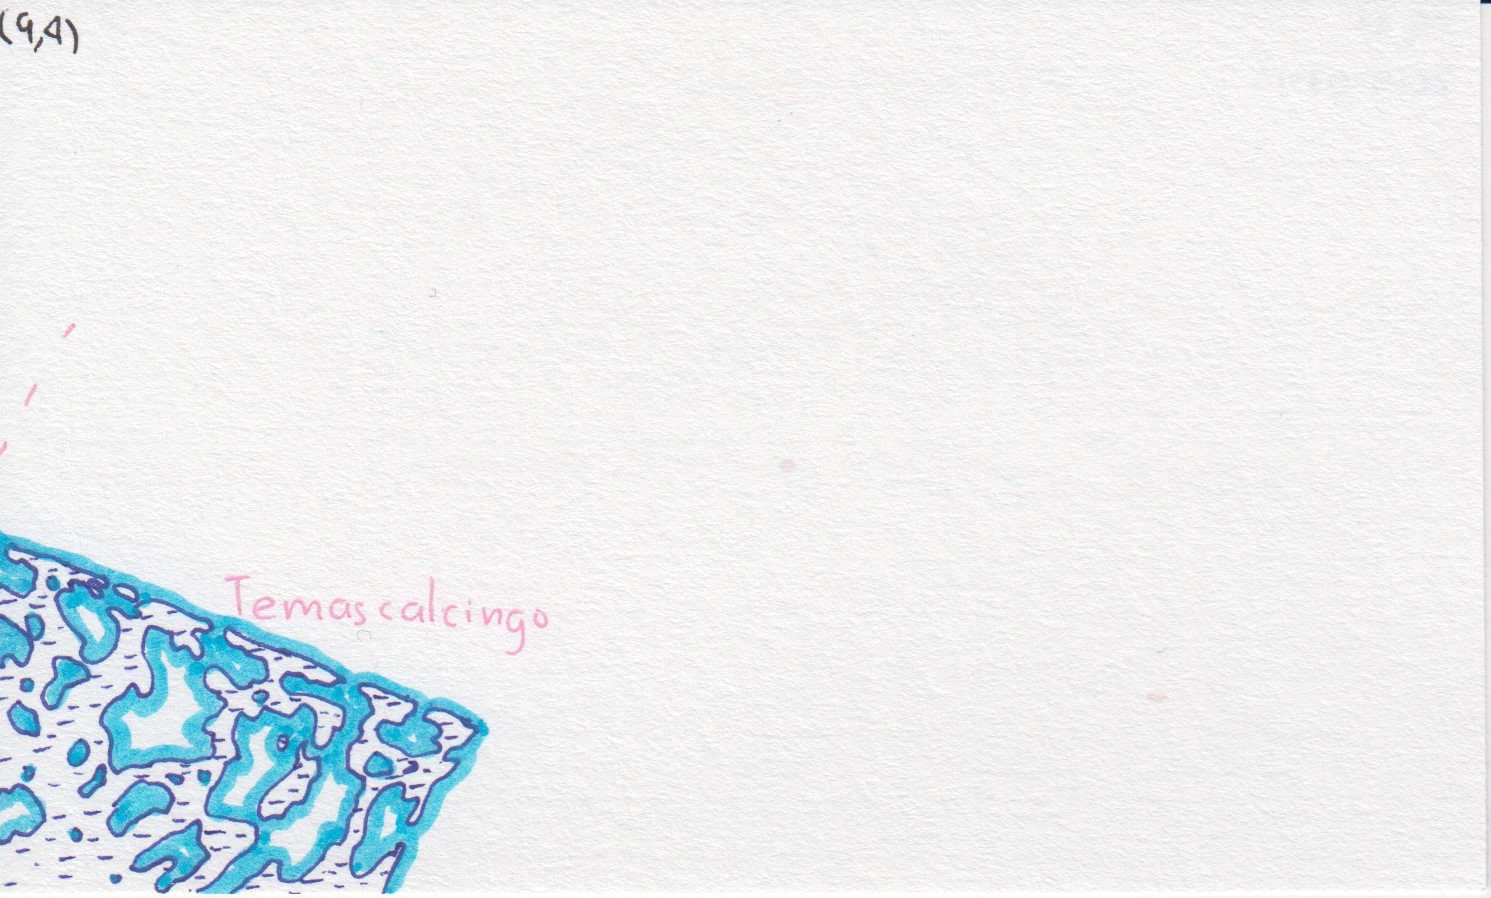 (9,4)
Temascalcingo